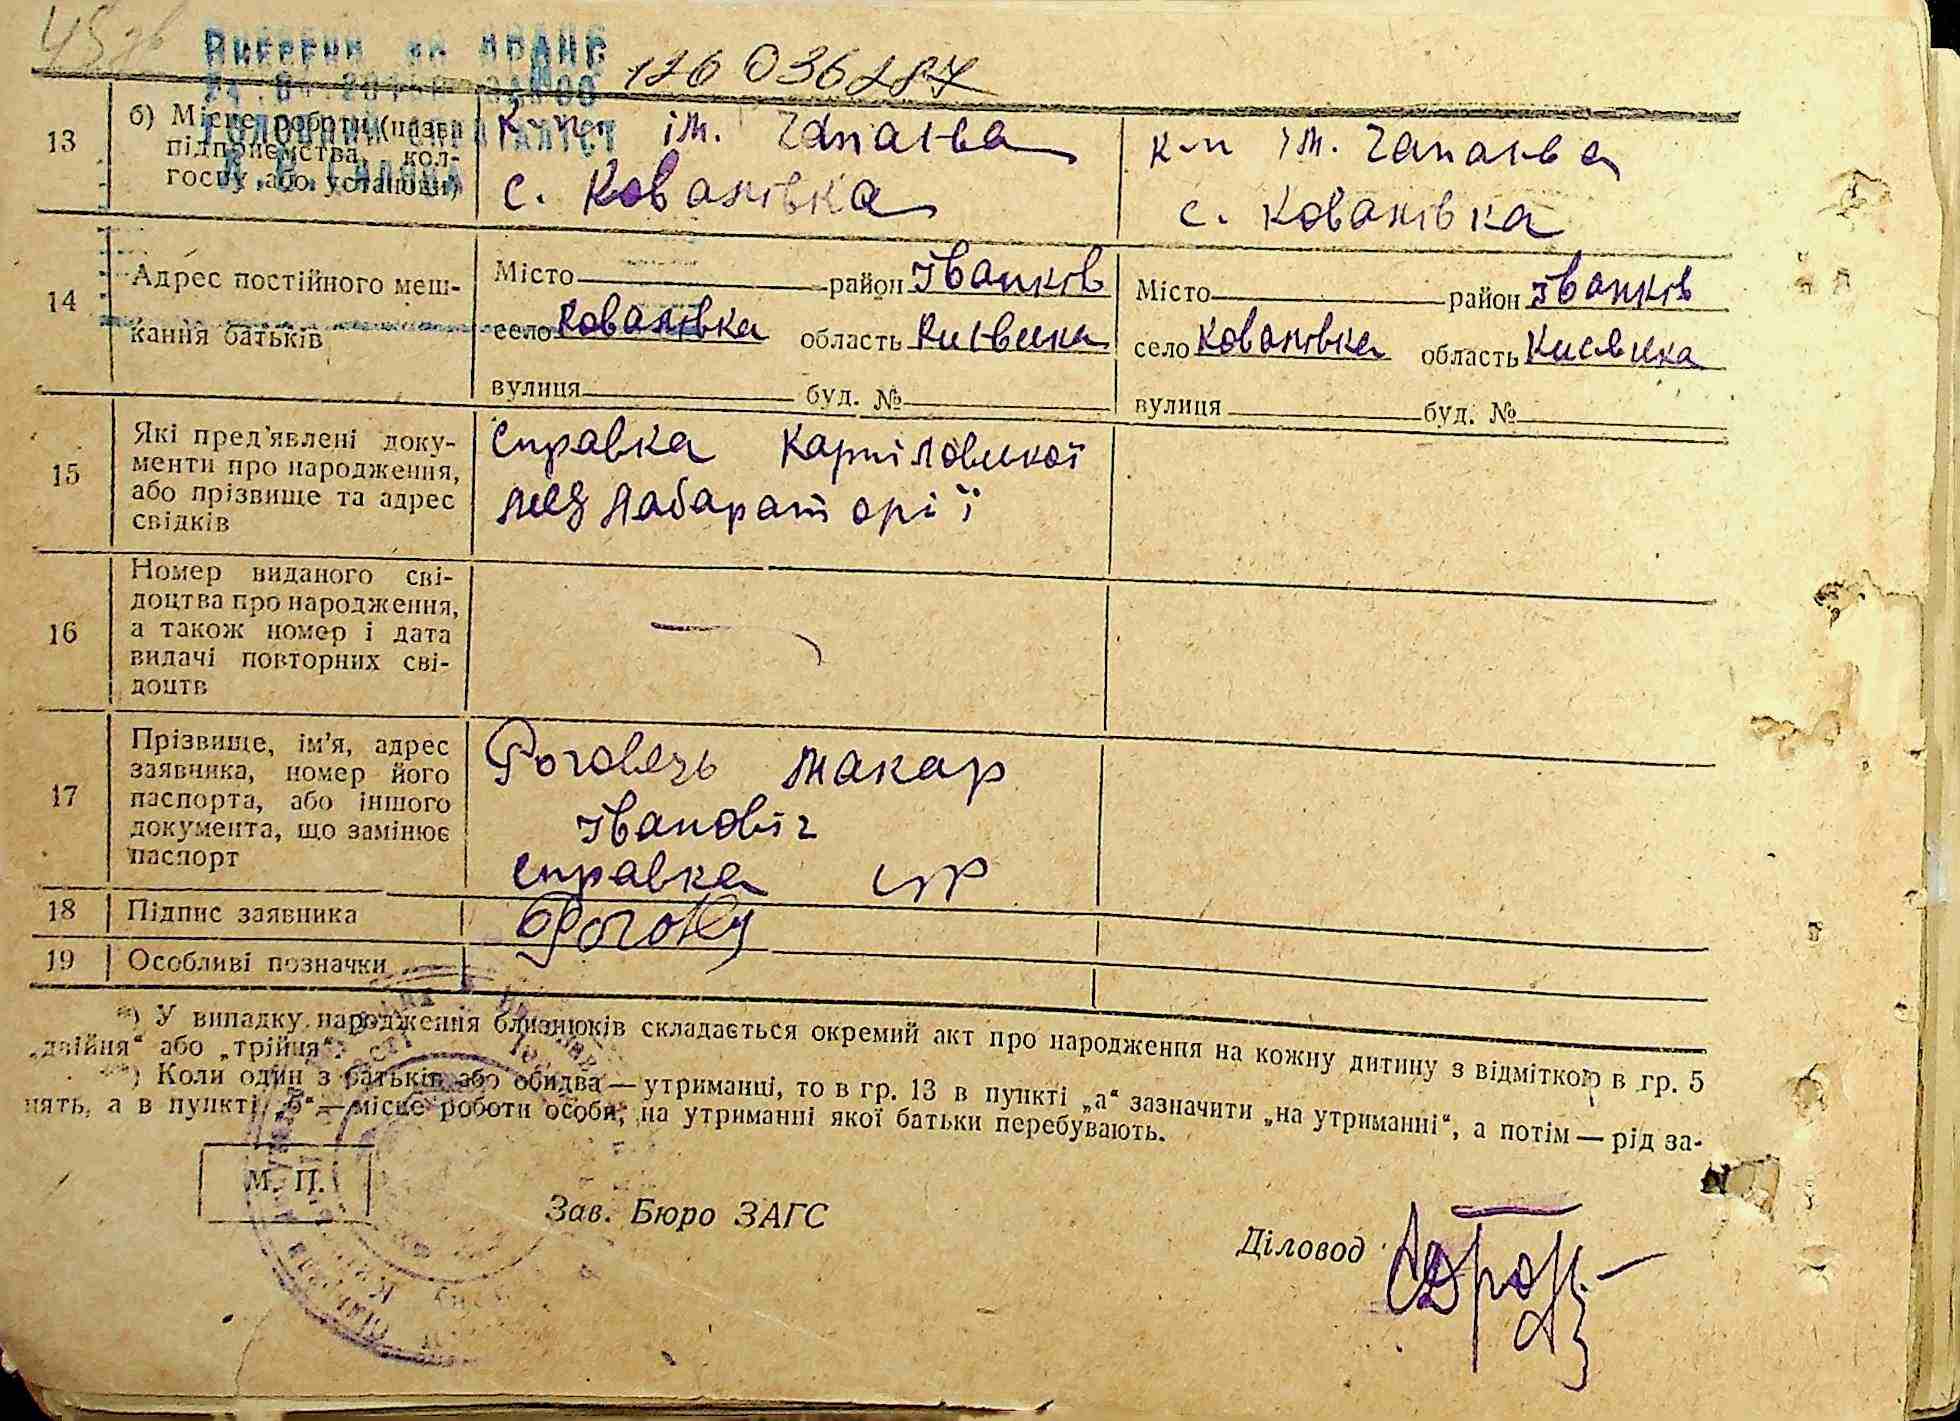 45 зв
Внесени до ДРАЦС
126 036287
13
б) Місце роботи (назва підприємства, кол-
госпу або установи)
к-п ім. Чапаєва
с. Кованівка
к-п ім. Чапаєва
с. Кованівка
14
Адрес постійного меш-
кання батьків
Місто район Іванків
село Кованівка область Київська
вулиця буд. №
Місто район Іванків
село Кованівка область Київська
вулиця буд. №
15
Які пред'явлені доку-
менти про народження,
або прізвище та адрес
свідків
Справка Карпіловської
мед лабараторії
16
Номер виданого сві-
доцтва про народження,
а також номер і дата
видачі повторних сві-
доцтв
17
Прізвище, ім'я, адрес
заявника, номер його
паспорта, або іншого
документа, що замінює
паспорт
Роговець Макар
Іванович
справка с/р
18
Підпис заявника
19
Особливі позначки
*) У випадку народження близнюків складається окремий акт про народження на кожну дитину з відміткою в гр. 5
„двійня“ або „трійня“.
**) Коли один з батьків або обидва — утриманці, то в гр. 13 в пункті „а“ зазначити „на утриманні“, а потім — рід за-
нять, а в пункті „б“ — місце роботи особи, на утриманні якої батьки перебувають.
М. П.
Зав. Бюро ЗАГС
Діловод